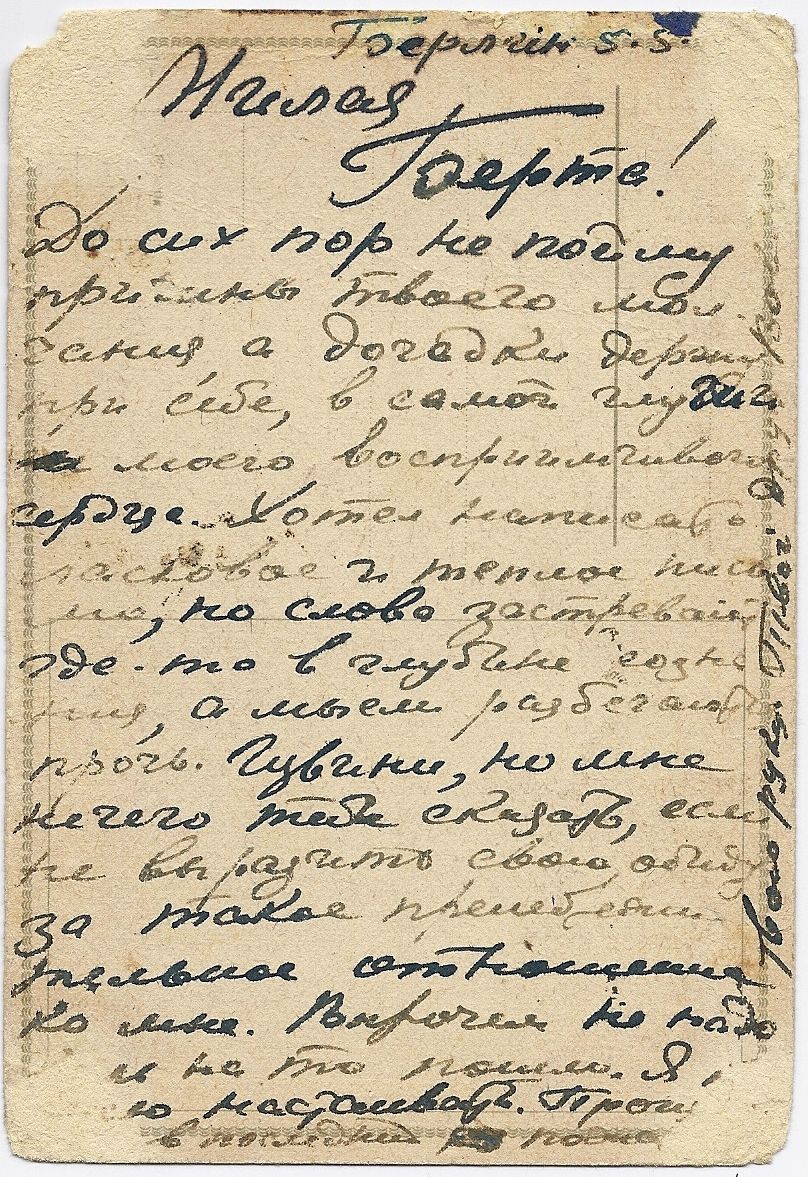 Берлин 5.5.
Милая
Берта!
До сих пор не пойму
причины твоего мол-
чания, а догадки держу
при себе, в самой глуби-
не моего восприимчивого
сердца. Хотел написать
ласковое и теплое пись
мо, но слова застревают
где-то в глубине созна
ния, а мысли разбегаются
прочь. Извини, но мне
нечего тебе сказать, если
не выразить свою обиду
за такое пренебрежи
тельное отношение
ко мне. Впрочем не надо
и на то пошло. Я,
ю настаивать.
в последний
твою руку.